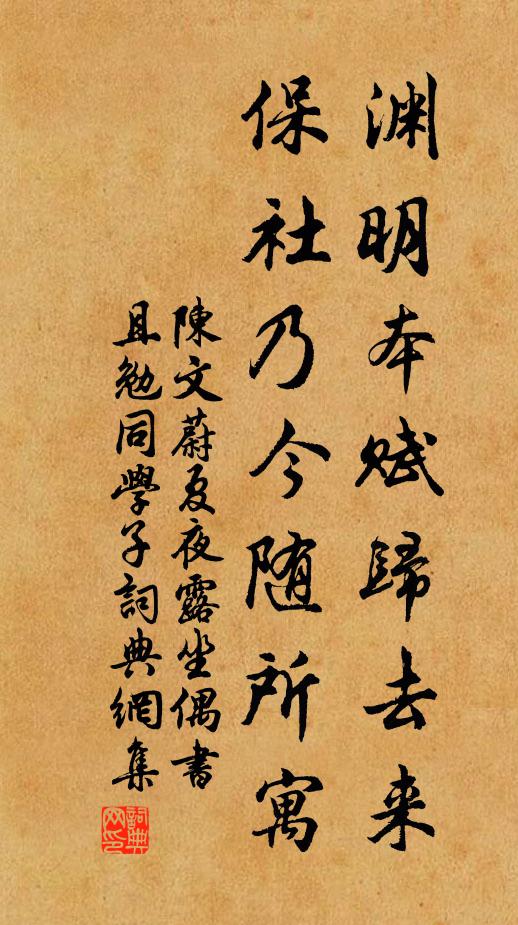 渊明本赋歸去来
保社乃今随所寓
陳文蔚夏夜露坐偶書
且勉同學子詞典網集
詞典網印